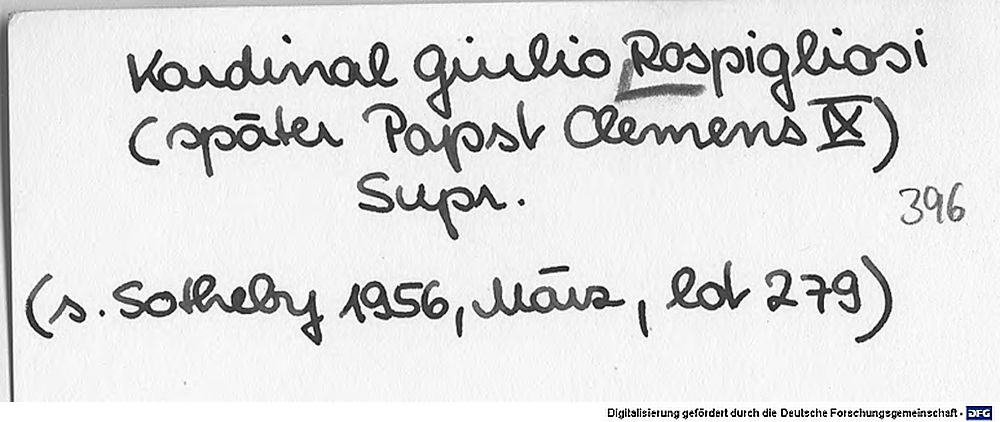 Kardinal Giulio Rospigliosi
(später Papst Clemens IX)
Supr.
396
(s. Sotheby 1956, März, lot 279)
Digitalisierung gefördert durch die Deutsche Forschungsgemeinschaft - DFG